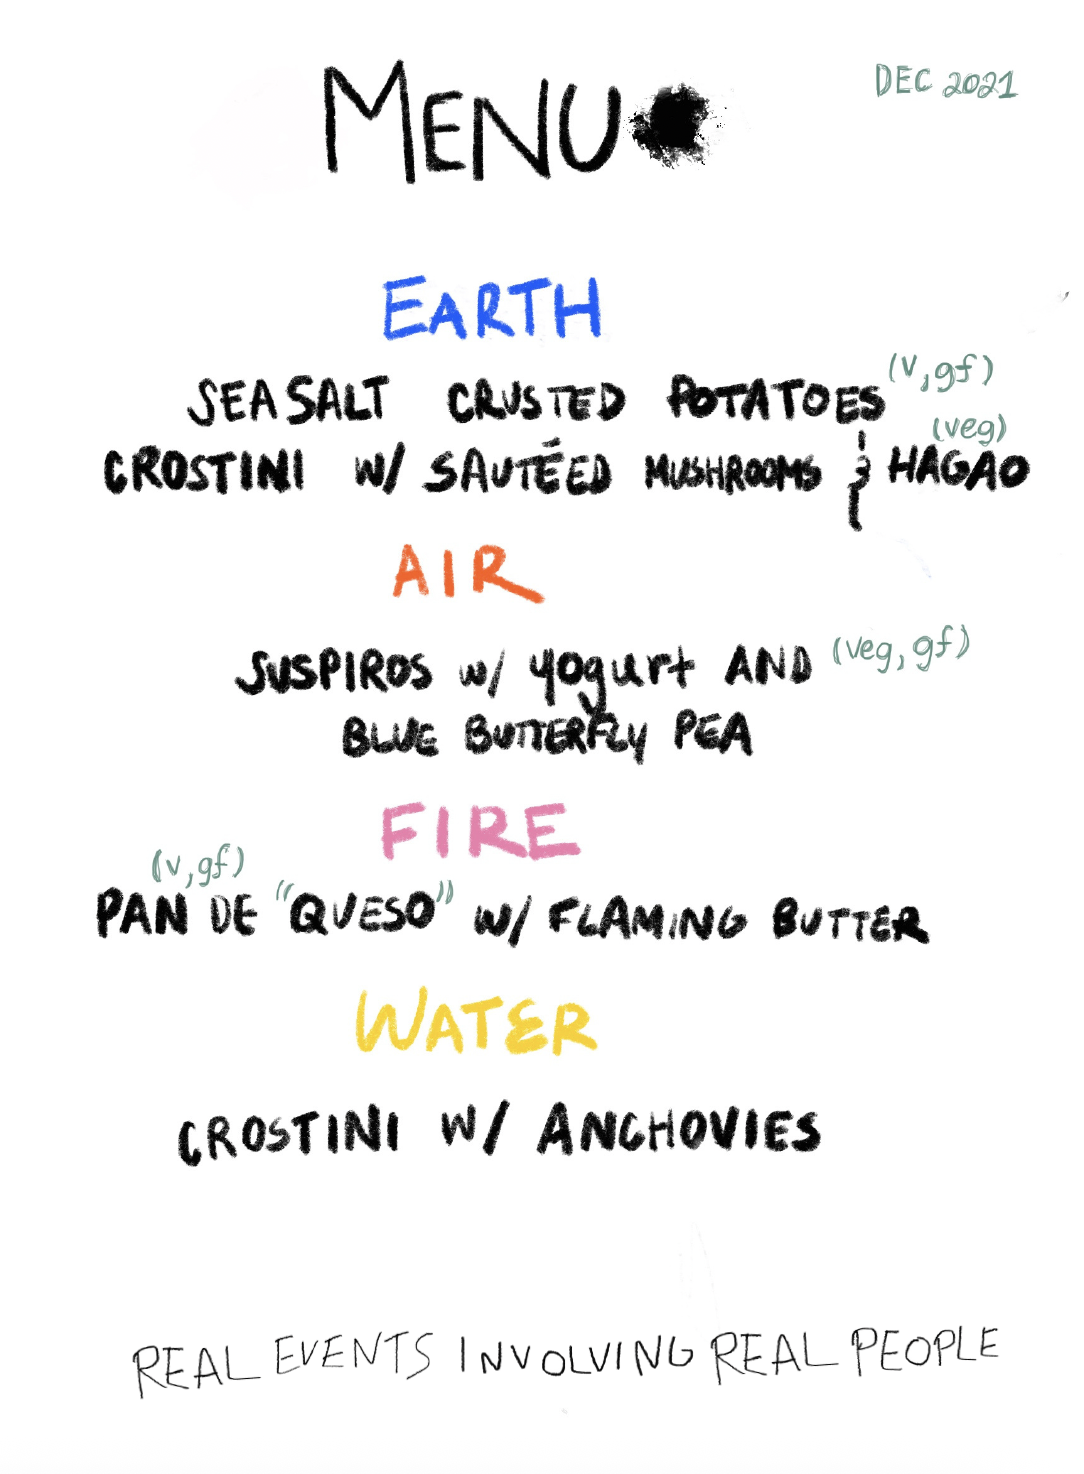 MENU
DEC 2021
EARTH
SEA SALT CRUSTED POTATOES (v,gf)
(veg)
CROSTINI W/ SAUTÉED MUSHROOMS & HAGAO
AIR
SUSPIROS w/ yogurt AND (veg, gf)
BLUE BUTTERFLY PEA
FIRE
(v,gf)
PAN DE "QUESO" W/ FLAMING BUTTER
WATER
CROSTINI W/ ANCHOVIES
REAL EVENTS INVOLVING REAL PEOPLE